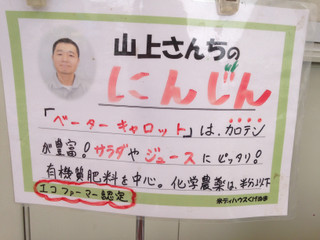 山上さんちの
にんじん
「ベーターキャロット」は、カロテン
が豊富!サラダやジュースにピッタリ!
有機質肥料を中心。化学農薬は、半分以下
エコファーマー認定